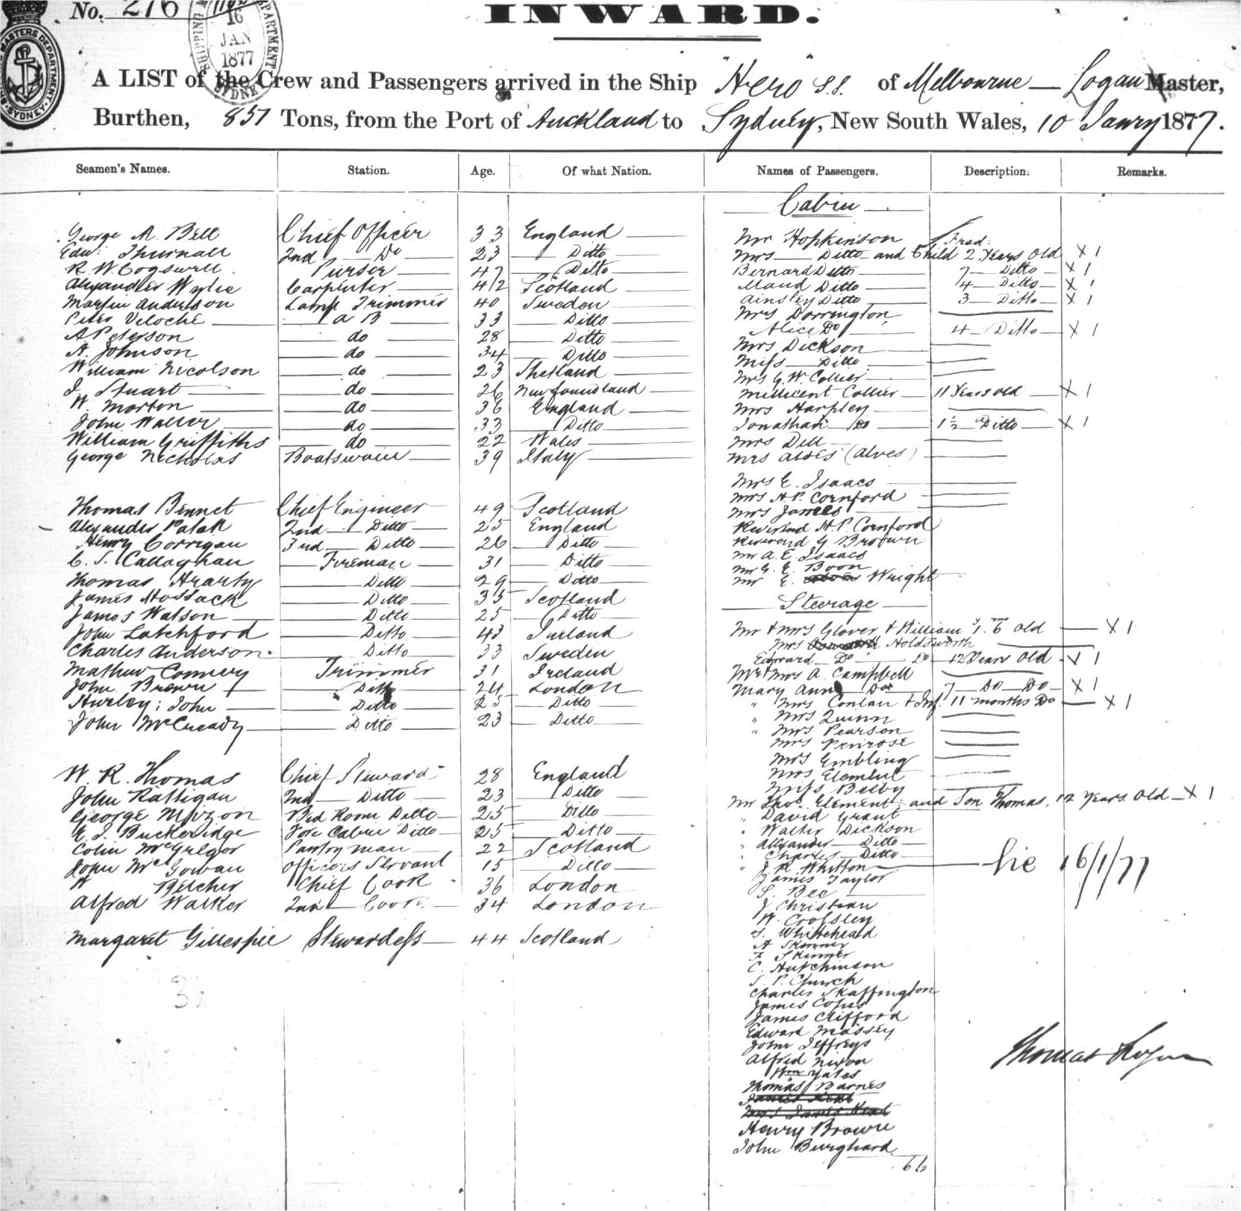 No. 276
SHIPPING MASTERS DEPARTMENT
16
JAN
1877
SYDNEY
INWARD.
A LIST of the Crew and Passengers arrived in the Ship "Hero" S.S. of Melbourne — Logan Master,
Burthen, 857 Tons, from the Port of Auckland to Sydney, New South Wales, 10 Janry 1877.
Seamen's Names. Station. Age. Of what Nation.
George A. Bell Chief Officer 33 England
Edw. Thurnall 2nd Do 23 Ditto
R W Cogswell Purser 47 Ditto
Alexander Wylie Carpenter 42 Scotland
Martin Anderson Lamp Trimmer 40 Sweden
Peter Veloche A B 33 Ditto
A Peterson do 28 Ditto
A. Johnson do 34 Ditto
William Nicolson do 23 Shetland
J. Stuart do 26 Newfoundland
W. Morton do 36 England
John Waller do 33 Ditto
William Griffiths do 22 Wales
George Nicholas Boatswain 39 Italy
Thomas Bennet Chief Engineer 49 Scotland
Alexander 2nd Ditto 25 England
Henry Corrigan 3rd Ditto 26 Ditto
C. S. Callaghan Fireman 31 Ditto
Thomas Ditto 29 Ditto
James Mossack Ditto 35 Scotland
James Watson Ditto 25 Ditto
John Latchford Ditto 43 Ireland
Charles Anderson Ditto 33 Sweden
Mathew Connery Trimmer 31 Ireland
John Brown Ditto 24 London
Hurley: John Ditto 25 Ditto
John McCready Ditto 23 Ditto
W. R. Thomas Chief Steward 28 England
John Rattigan 2nd Ditto 23 Ditto
George Bed Room Ditto 25 Ditto
E. J. Buckeridge Fore Cabin Ditto 25 Ditto
Colin McGregor Pantryman 22 Scotland
John McGowan Officers Servant 15 Ditto
W Belcher Chief Cook 36 London
Alfred Walker 2nd Cook 34 London
Margaret Gillespie Stewardess 44 Scotland
Names of Passengers. Description. Remarks.
Cabin
Mr Hopkinson
Mrs Ditto and Child Fred. 2 Years Old X 1
Bernard Ditto 7 Ditto X 1
Maud Ditto 4 Ditto X 1
Ainsley Ditto 3 Ditto X 1
Mrs Dorrington
Alice Do 4 Ditto X 1
Mrs Dickson
Miss Ditto
Mrs G. W. Collier
Millicent Collier 11 Years old X 1
Mrs Harpley
Jonathan Do 1½ Ditto X 1
Mrs Dell
Mrs Aldes (Alves)
Mrs E. Isaacs
Mrs H P. Cornford
Mrs James
Reverend H P Cornford
Reverend G Brown
Mr A. E. Isaacs
Mr G. E. Boon
Mr E. Wright
Steerage
Mr & Mrs Glover & William 1.6 old X 1
Mrs Holdsworth
Edward Do 12 Years Old X 1
Mr & Mrs A. Campbell
Mary Ann Do 7 Do Do X 1
" Mrs Conlan & Inf. 11 months Do X 1
" Mrs Quinn
" Mrs Pearson
Mrs Penrose
Mrs Embling
Mrs
Miss Beeby
Mr Thos. Element and Son Thomas, 12 Years Old X 1
" David Grant
" Walter Dickson
" Alexander Ditto
" Charles Ditto
" J. R. Whitton
James Taylor
S. Bee
J Christian
W. Crossley
T. Whitehead
A Skinner
F Skinner
C. Hutchinson
S. P. Church
Charles Skeffington
James
James Clifford
Edward Massey
John Jeffreys
Alfred Nixon
Wm Yates
Thomas Barnes
Henry Browne
John Burghard
66
16/1/77
Thomas Logan